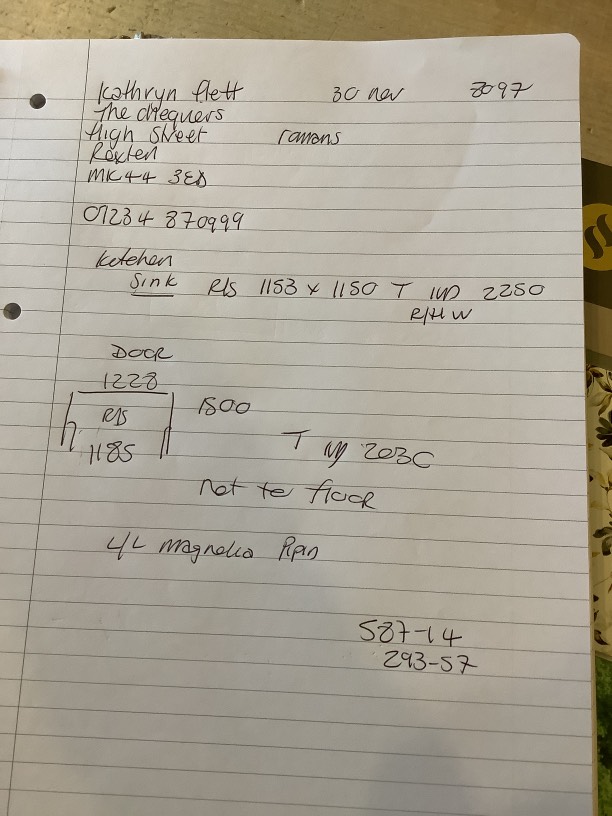 Kathryn Flett 30 nov 8097
The Chequers
High Street romans
Roxten
MK44 3ED
01234 870999
Kitchen
Sink R/S 1153 x 1150 T up 2250
R/H W
DOOR
1228
R/S 1800
1185
T up 2030
not to floor
L/L magnolia
587-14
293-57